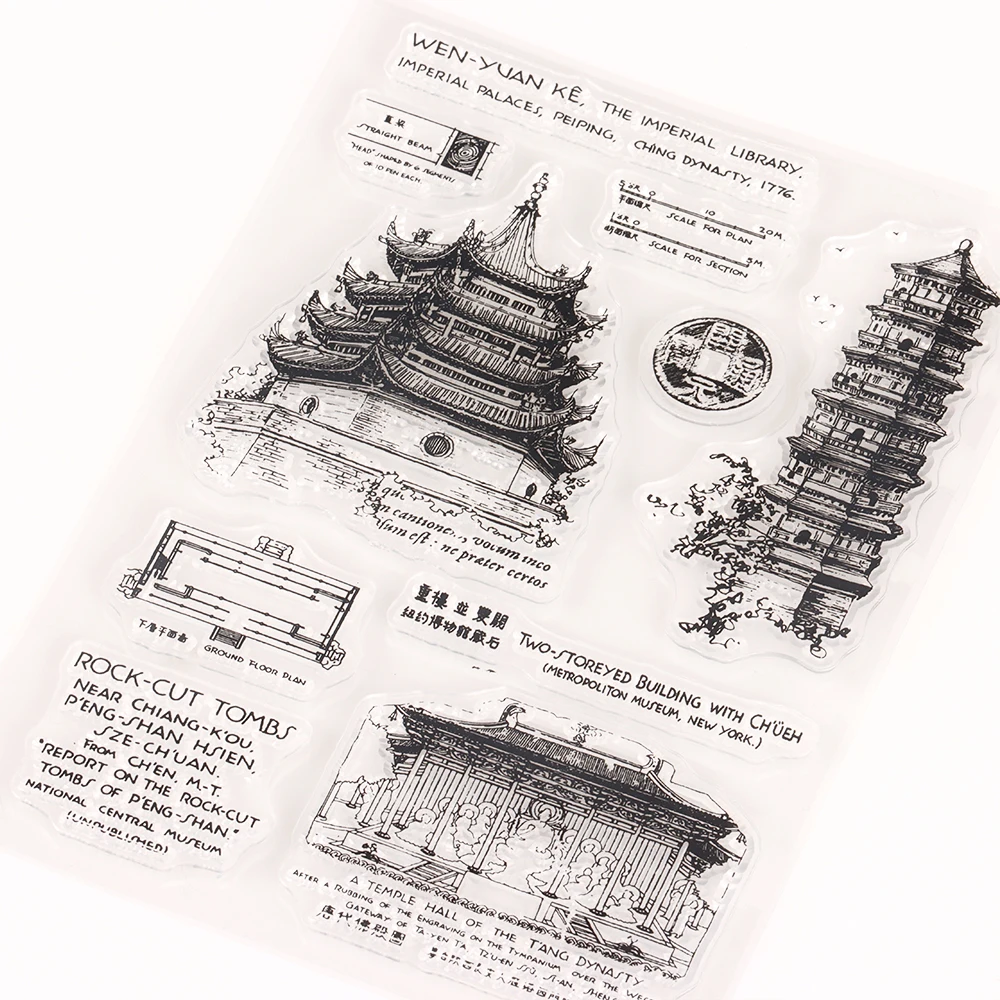 WEN-YUAN KÊ, THE IMPERIAL LIBRARY.
IMPERIAL PALACES, PEIPING, CH'ING DYNASTY, 1776.
STRAIGHT BEAM
"HEAD" SHAPED BY 6 SEGMENTS
OF 10 FEN EACH.
0 10 20M.
平面縮尺 SCALE FOR PLAN
0 5M
SCALE FOR SECTION
qui
n cantione volum inco
sum est ne præter certos
下層平面圖
GROUND FLOOR PLAN
重樓並雙闕
紐約博物館藏石
TWO-STOREYED BUILDING WITH CH'ÜEH
(METROPOLITON MUSEUM, NEW YORK.)
ROCK-CUT TOMBS
NEAR CHIANG-K'OU,
P'ENG-SHAN HSIEN,
SZE-CH'UAN.
FROM CH'EN, M-T.
"REPORT ON THE ROCK-CUT
TOMBS OF P'ENG-SHAN"
NATIONAL CENTRAL MUSEUM
(UNPUBLISHED)
A TEMPLE HALL OF THE T'ANG DYNASTY
AFTER A RUBBING OF THE ENGRAVING ON THE TYMPANIUM OVER THE WEST
GATEWAY OF TA-YEN T'A, TZ'U-EN SSŬ, SI-AN, SHENSI
唐代佛殿圖